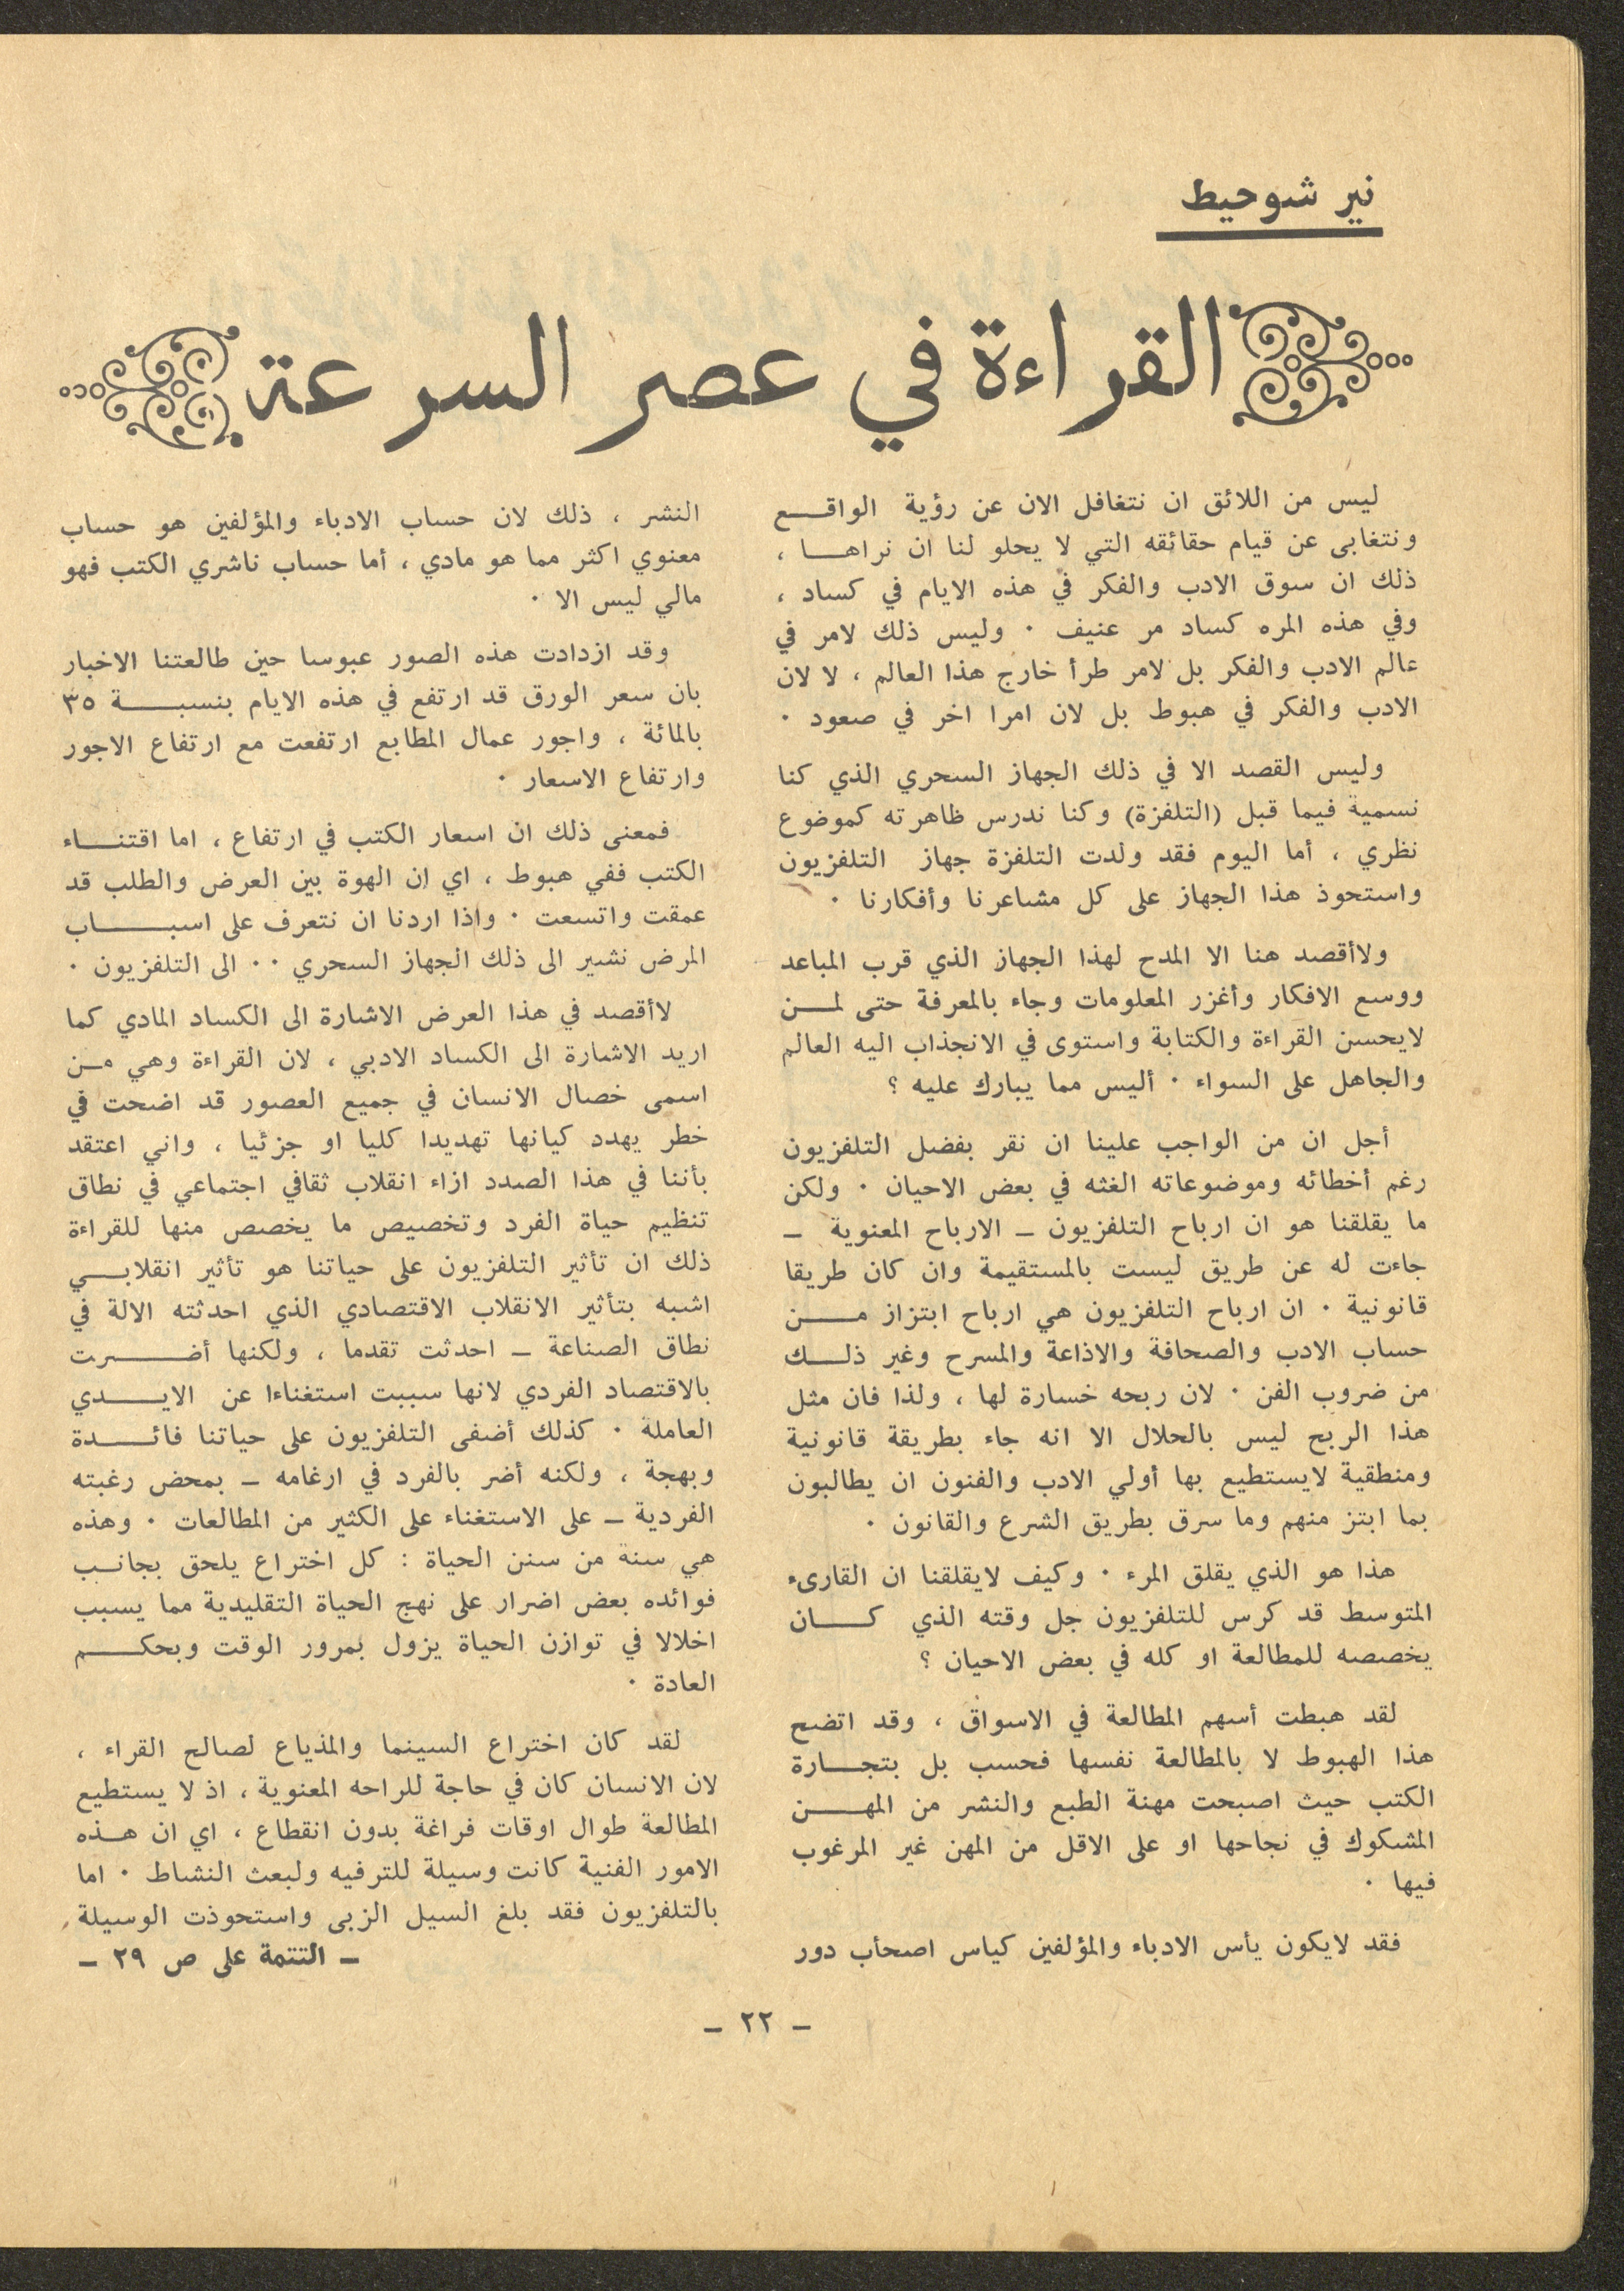 نير شوحيط
القراءة في عصر السرعة
ليس من اللائق ان نتغافل الان عن رؤية الواقع
ونتغابى عن قيام حقائقه التي لا يحلو لنا ان نراها ،
ذلك ان سوق الادب والفكر في هذه الايام في كساد ،
وفي هذه المره كساد مر عنيف ٠ وليس ذلك لامر في
عالم الادب والفكر بل لامر طرأ خارج هذا العالم ، لا لان
الادب والفكر في هبوط بل لان امرا اخر في صعود ٠
وليس القصد الا في ذلك الجهاز السحري الذي كنا
نسمية فيما قبل (التلفزة) وكنا ندرس ظاهرته كموضوع
نظري ، أما اليوم فقد ولدت التلفزة جهاز التلفزيون
واستحوذ هذا الجهاز على كل مشاعرنا وأفكارنا ٠
ولاأقصد هنا الا المدح لهذا الجهاز الذي قرب المباعد
ووسع الافكار وأغزر المعلومات وجاء بالمعرفة حتى لمن
لايحسن القراءة والكتابة واستوى في الانجذاب اليه العالم
والجاهل على السواء ٠ أليس مما يبارك عليه ؟
أجل ان من الواجب علينا ان نقر بفضل التلفزيون
رغم أخطائه وموضوعاته الغثه في بعض الاحيان ٠ ولكن
ما يقلقنا هو ان ارباح التلفزيون ــ الارباح المعنوية ــ
جاءت له عن طريق ليست بالمستقيمة وان كان طريقا
قانونية ٠ ان ارباح التلفزيون هي ارباح ابتزاز من
حساب الادب والصحافة والاذاعة والمسرح وغير ذلك
من ضروب الفن ٠ لان ربحه خسارة لها ، ولذا فان مثل
هذا الربح ليس بالحلال الا انه جاء بطريقة قانونية
ومنطقية لايستطيع بها أولي الادب والفنون ان يطالبون
بما ابتز منهم وما سرق بطريق الشرع والقانون ٠
هذا هو الذي يقلق المرء ٠ وكيف لايقلقنا ان القارىء
المتوسط قد كرس للتلفزيون جل وقته الذي كان
يخصصه للمطالعة او كله في بعض الاحيان ؟
لقد هبطت أسهم المطالعة في الاسواق ، وقد اتضح
هذا الهبوط لا بالمطالعة نفسها فحسب بل بتجارة
الكتب حيث اصبحت مهنة الطبع والنشر من المهن
المشكوك في نجاحها او على الاقل من المهن غير المرغوب
فيها ٠
فقد لايكون يأس الادباء والمؤلفين كياس اصحأب دور
النشر ، ذلك لان حساب الادباء والمؤلفين هو حساب
معنوي اكثر مما هو مادي ، أما حساب ناشري الكتب فهو
مالي ليس الا ٠
وقد ازدادت هذه الصور عبوسا حين طالعتنا الاخبار
بان سعر الورق قد ارتفع في هذه الايام بنسبة ٣٥
بالمائة ، واجور عمال المطابع ارتفعت مع ارتفاع الاجور
وارتفاع الاسعار ٠
فمعنى ذلك ان اسعار الكتب في ارتفاع ، اما اقتناء
الكتب ففي هبوط ، اي ان الهوة بين العرض والطلب قد
عمقت واتسعت ٠ واذا اردنا ان نتعرف على اسباب
المرض نشير الى ذلك الجهاز السحري ٠٠ الى التلفزيون ٠
لاأقصد في هذا العرض الاشارة الى الكساد المادي كما
اريد الاشارة الى الكساد الادبي ، لان القراءة وهي من
اسمى خصال الانسان في جميع العصور قد اضحت في
خطر يهدد كيانها تهديدا كليا او جزئيا ، واني اعتقد
بأننا في هذا الصدد ازاء انقلاب ثقافي اجتماعي في نطاق
تنظيم حياة الفرد وتخصيص ما يخصص منها للقراءة
ذلك ان تأثير التلفزيون على حياتنا هو تأثير انقلابي
اشبه بتأثير الانقلاب الاقتصادي الذي احدثته الالة في
نطاق الصناعة ــ احدثت تقدما ، ولكنها أضرت
بالاقتصاد الفردي لانها سببت استغناءا عن الايدي
العاملة ٠ كذلك أضفى التلفزيون على حياتنا فائدة
وبهجة ، ولكنه أضر بالفرد في ارغامه ــ بمحض رغبته
الفردية ــ على الاستغناء على الكثير من المطالعات ٠ وهذه
هي سنة من سنن الحياة : كل اختراع يلحق بجانب
فوائده بعض اضرار على نهج الحياة التقليدية مما يسبب
اخلالا في توازن الحياة يزول بمرور الوقت وبحكم
العادة ٠
لقد كان اختراع السينما والمذياع لصالح القراء ،
لان الانسان كان في حاجة للراحه المعنوية ، اذ لا يستطيع
المطالعة طوال اوقات فراغة بدون انقطاع ، اي ان هذه
الامور الفنية كانت وسيلة للترفيه ولبعث النشاط ٠ اما
بالتلفزيون فقد بلغ السيل الزبى واستحوذت الوسيلة
ــ التتمة على ص ٢٩ ــ
ــ ٢٢ ــ